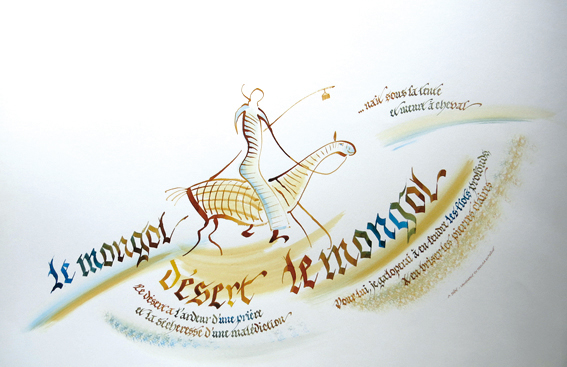 ...naît sous la tente
et meurt à cheval
le mongol
désert
le mongol
Le désert a l'ardeur d'une prière
et la sécheresse d'une malédiction
Pour lui, je galoperai à en fendre les flots profonds
à en briser les pierres claires